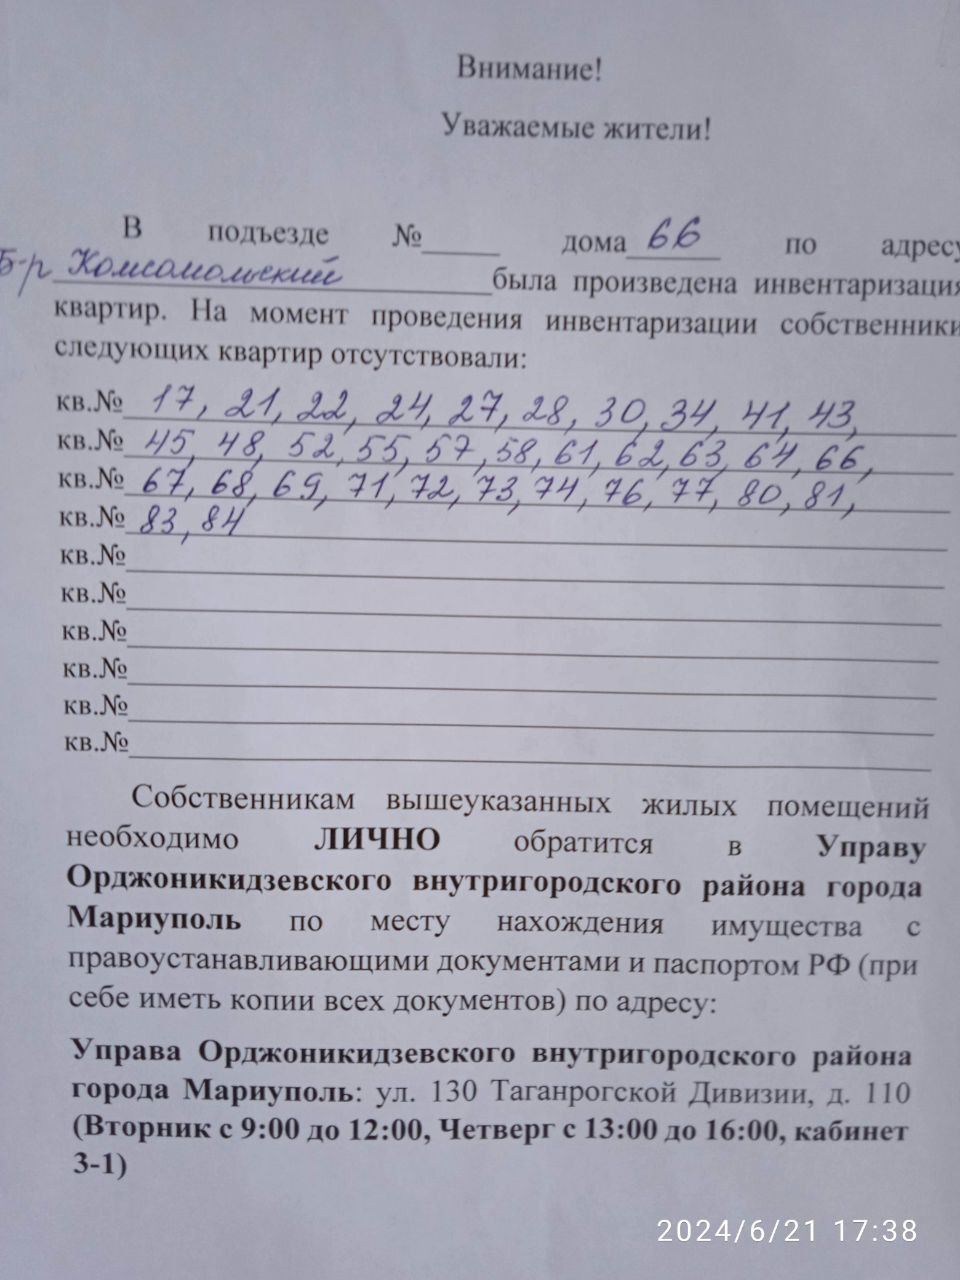 Внимание!
Уважаемые жители!
В подъезде №_____ дома 66 по адресу
Б-р Комсомольский была произведена инвентаризация
квартир. На момент проведения инвентаризации собственники
следующих квартир отсутствовали:
кв.№ 17, 21, 22, 24, 27, 28, 30, 34, 41, 43,
кв.№ 45, 48, 52, 55, 57, 58, 61, 62, 63, 64, 66,
кв.№ 67, 68, 69, 71, 72, 73, 74, 76, 77, 80, 81,
кв.№ 83, 84
кв.№
кв.№
кв.№
кв.№
кв.№
кв.№
Собственникам вышеуказанных жилых помещений
необходимо ЛИЧНО обратится в Управу
Орджоникидзевского внутригородского района города
Мариуполь по месту нахождения имущества с
правоустанавливающими документами и паспортом РФ (при
себе иметь копии всех документов) по адресу:
Управа Орджоникидзевского внутригородского района
города Мариуполь: ул. 130 Таганрогской Дивизии, д. 110
(Вторник с 9:00 до 12:00, Четверг с 13:00 до 16:00, кабинет
3-1)
2024/6/21 17:38